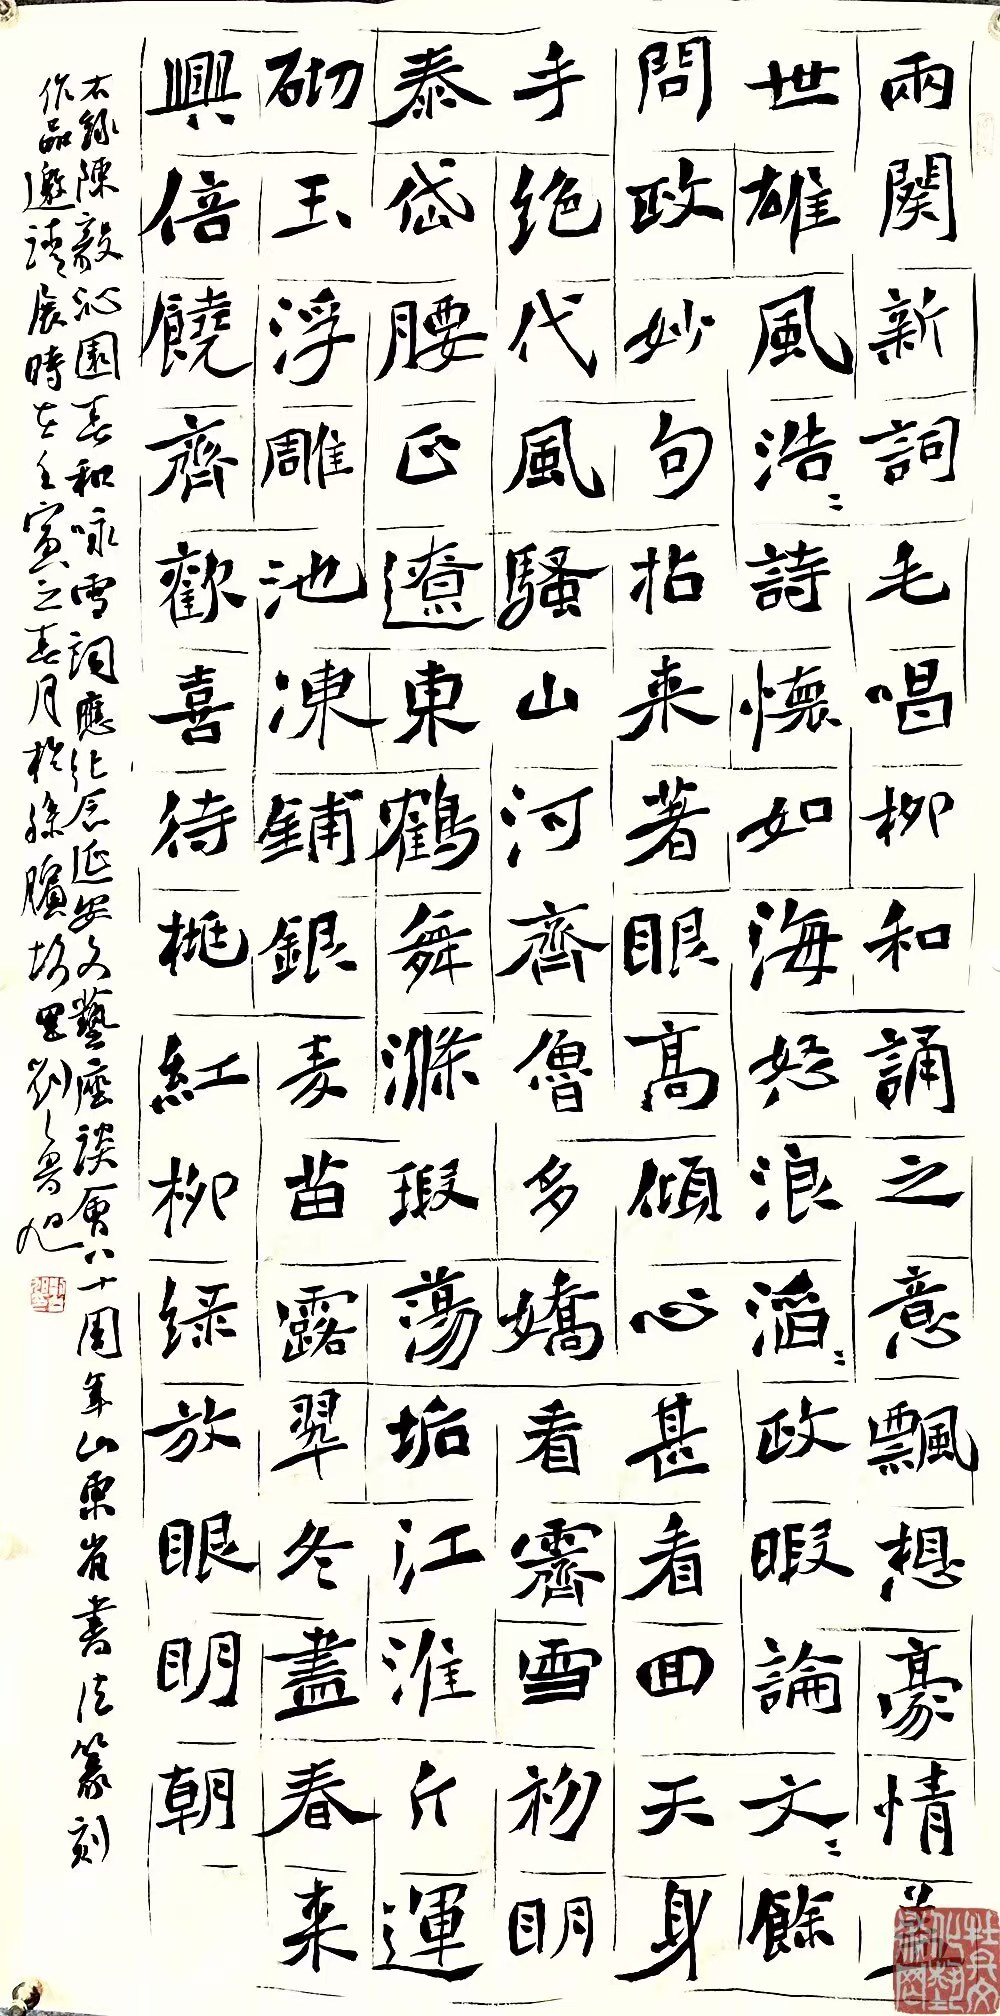 兩闋新詞毛唱柳和誦之意飄想豪情蓋
世雄風浩〻詩懷如海怒浪滔〻政暇論文〻餘
問政妙句拈来著眼高傾心甚看回天身
手绝代風騷山河齊魯多嬌看霽雪初明
泰岱腰正遼東鶴舞滌瑕蕩垢江淮斤運
砌玉浮雕池凍鋪銀麦苗露翠冬盡春来
興倍饒齊歡喜待桃紅柳绿放眼明朝
右錄陳毅沁園春和咏雪詞應紀念延安文藝座談會八十周年山東省書法篆刻
作品邀請展時在壬寅之春月於孫臏故里劉魯旭